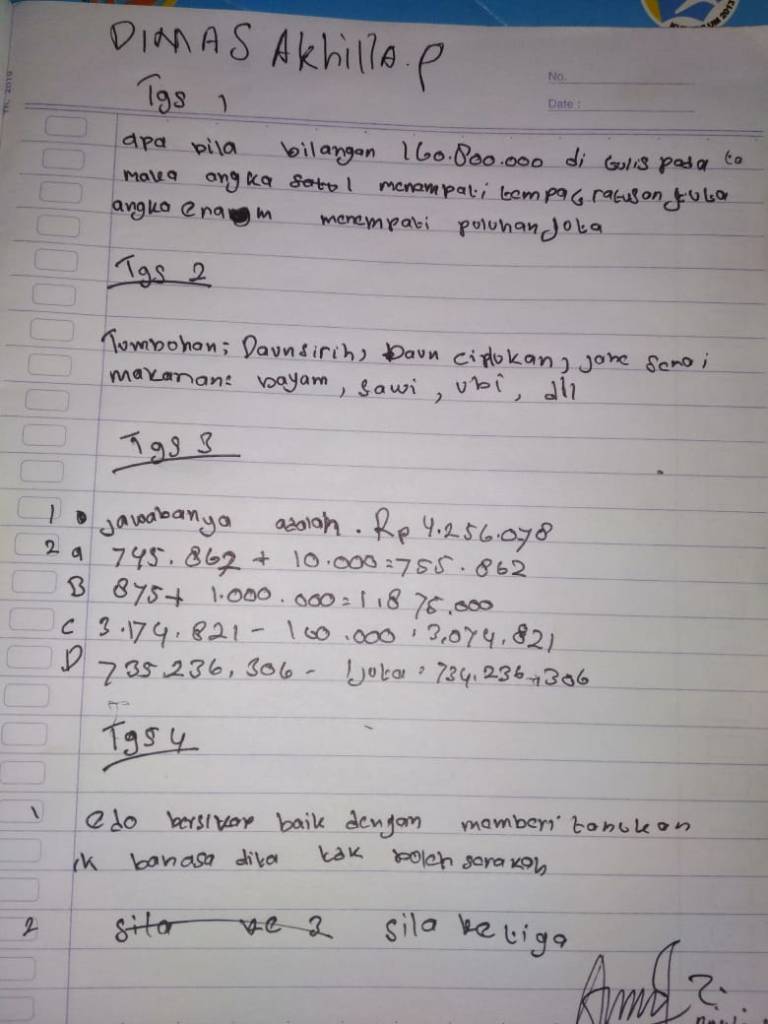 DIMAS Akhilla.P
No.
Date :
Tgs 1
apa bila bilangan 160.800.000 di tulis pada ta
maka angka 1 menempati tempat ratusan juta
angka enam menempati puluhan Jota
Tgs 2
Tumbohan; Daunsirih, Daun ciplukan, jahe serai
makanan: bayam, sawi, ubi, dll
Tgs 3
1 jawabanya adalah. Rp 4.256.078
2 a 745.862 + 10.000=755.862
B 875+ 1.000.000=1.875.000
C 3.174.821 - 100.000 : 3.074.821
D 735.236.306 - 1juta : 734.236.306
Tgs 4
1 edo bersikap baik dengan memberi tahukan
k bahasa dita tak boleh serakah
2 sila ke 2 sila ke tiga